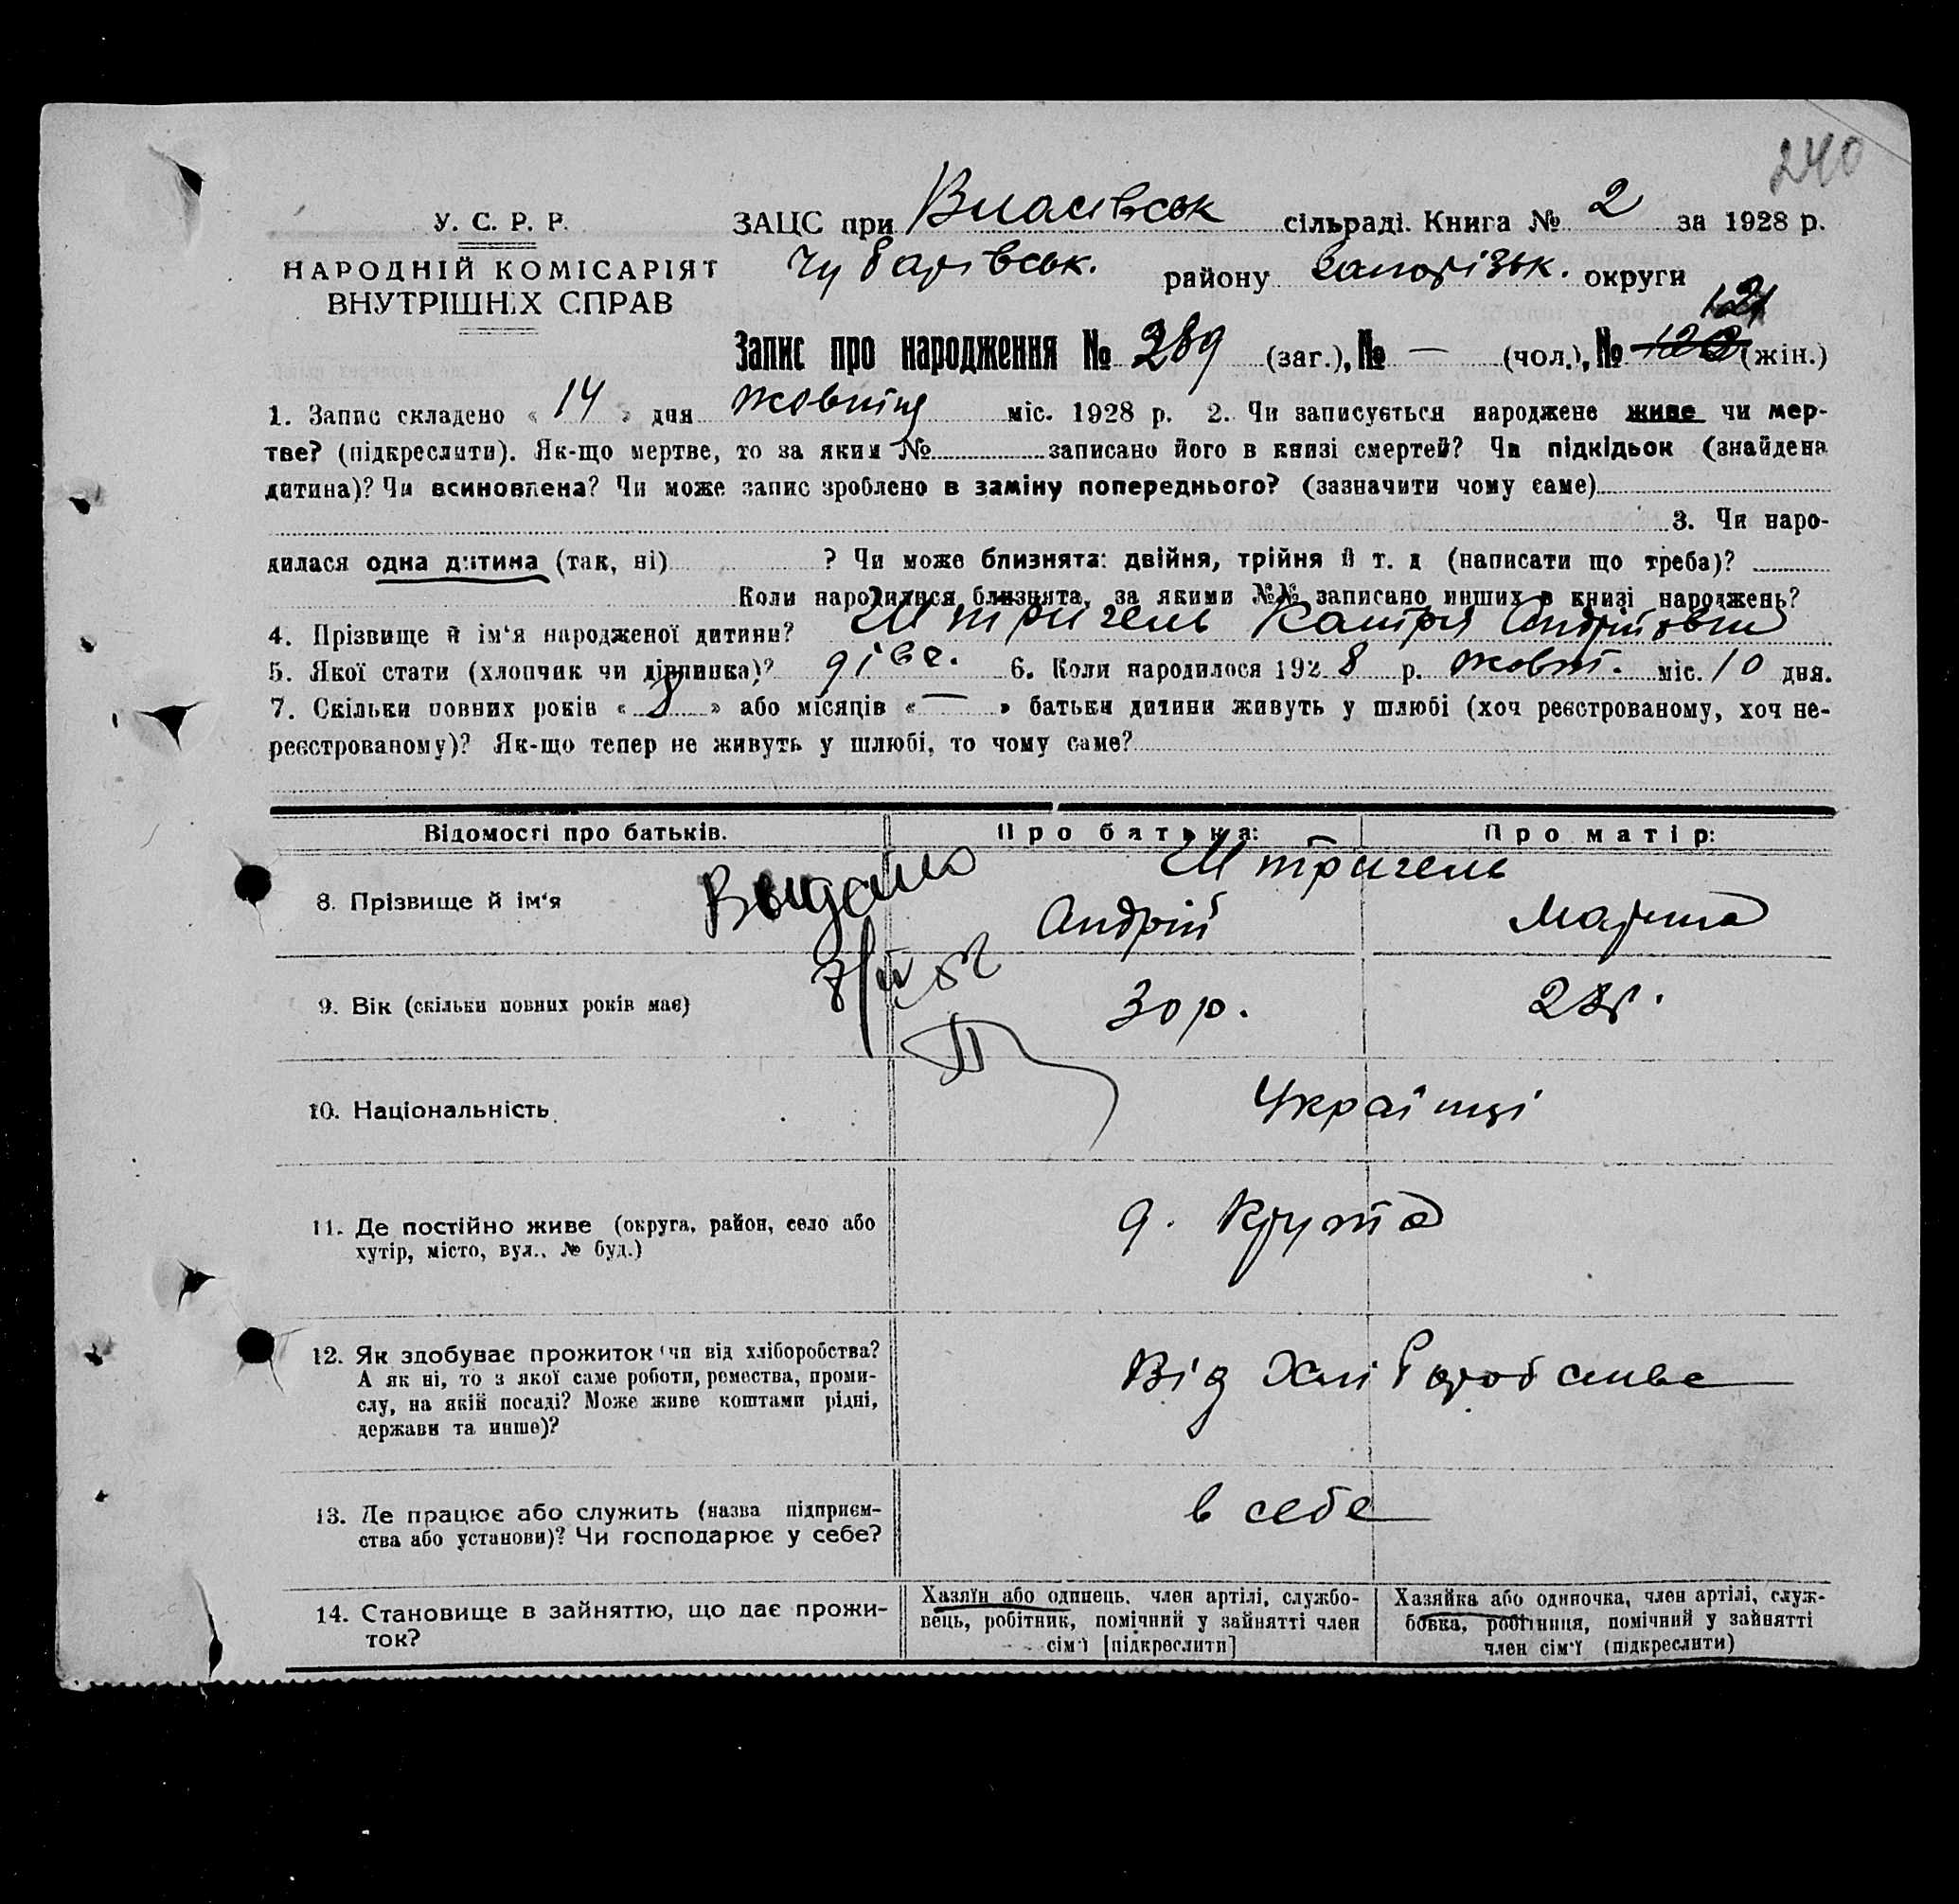 240
У. С. Р. Р.
НАРОДНІЙ КОМІСАРІЯТ
ВНУТРІШНІХ СПРАВ
ЗАЦС при Власівськ сільраді. Книга № 2 за 1928 р.
Чубарівськ. району Запорізьк. округи
121
Запис про народження № 289 (заг.), № — (чол.), № 122 (жін.)
1. Запис складено « 14 » дня жовтня міс. 1928 р. 2. Чи записується народжене живе чи мер-
тве? (підкреслити). Як-що мертве, то за яким № записано його в книзі смертей? Чи підкідьок (знайдена
дитина)? Чи всиновлена? Чи може запис зроблено в заміну попереднього? (зазначити чому саме)
3. Чи наро-
дилася одна дитина (так, ні) ? Чи може близнята: двійня, трійня й т. д (написати що треба)?
Коли народилися близнята, за якими №№ записано инших в книзі народжень?
4. Прізвище й ім‘я народженої дитини? Штригель Катря Андріївна
5. Якої стати (хлопчик чи дівчинка)? дівч. 6. Коли народилося 1928 р. жовт. міс. 10 дня.
7. Скільки повних років « 8 » або місяців « — » батьки дитини живуть у шлюбі (хоч реєстрованому, хоч не-
реєстрованому)? Як-що тепер не живуть у шлюбі, то чому саме?
Відомості про батьків. Про батька: Про матір:
Штригель
8. Прізвище й ім‘я Выдано Андрій Марина
9. Вік (скільки повних років має) 30 р. 28 р.
10. Національність Українці
11. Де постійно живе (округа, район, село або
хутір, місто, вул., № буд.)
д. Крута
12. Як здобуває прожиток (чи від хліборобства?
А як ні, то з якої саме роботи, ремества, проми-
слу, на якій посаді? Може живе коштами рідні,
держави та инше)?
Від Хліборобства
13. Де працює або служить (назва підприєм-
ства або установи)? Чи господарює у себе?
в себе
14. Становище в зайняттю, що дає прожи-
ток?
Хазяїн або одинець, член артілі, службо-
вець, робітник, помічний у зайнятті член
сім‘ї [підкреслити]
Хазяйка або одиночка, член артілі, служ-
бовка, робітниця, помічний у зайнятті
член сім‘ї (підкреслити)